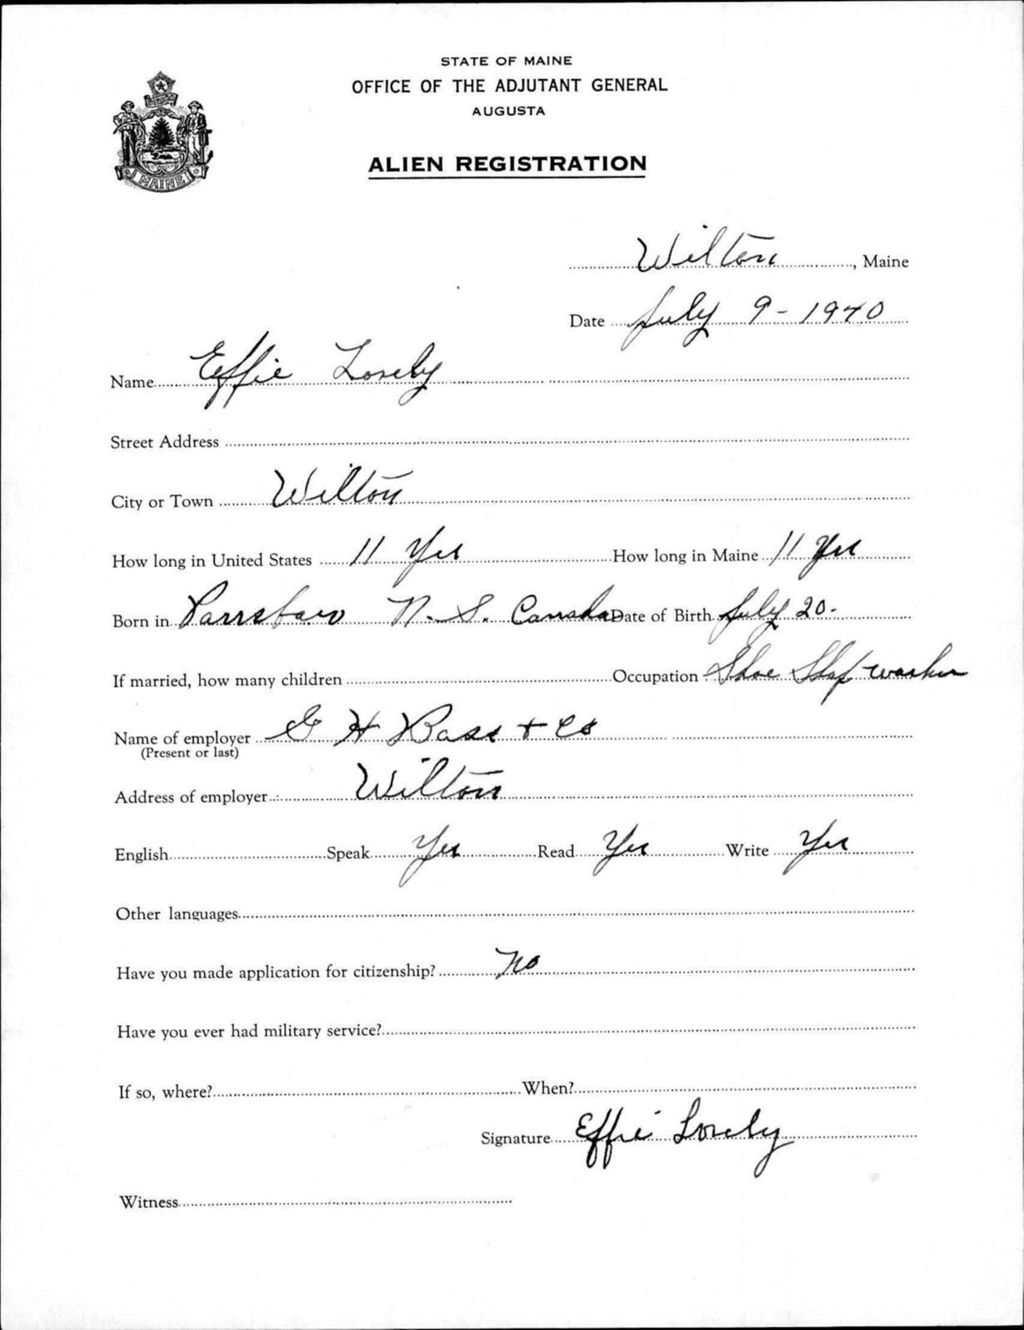 STATE OF MAINE
OFFICE OF THE ADJUTANT GENERAL
AUGUSTA
ALIEN REGISTRATION
MAINE
Wilton, Maine
Date July 9 - 1940
Name Effie Lovely
Street Address
City or Town Wilton
How long in United States 11 Yrs How long in Maine 11 Yrs
Born in Parrsboro N. S. Canada Date of Birth July 20 -
If married, how many children Occupation Shoe Shop worker
Name of employer G H Bass + Co
(Present or last)
Address of employer Wilton
English Speak Yes Read Yes Write Yes
Other languages
Have you made application for citizenship? No
Have you ever had military service?
If so, where? When?
Signature Effie Lovely
Witness